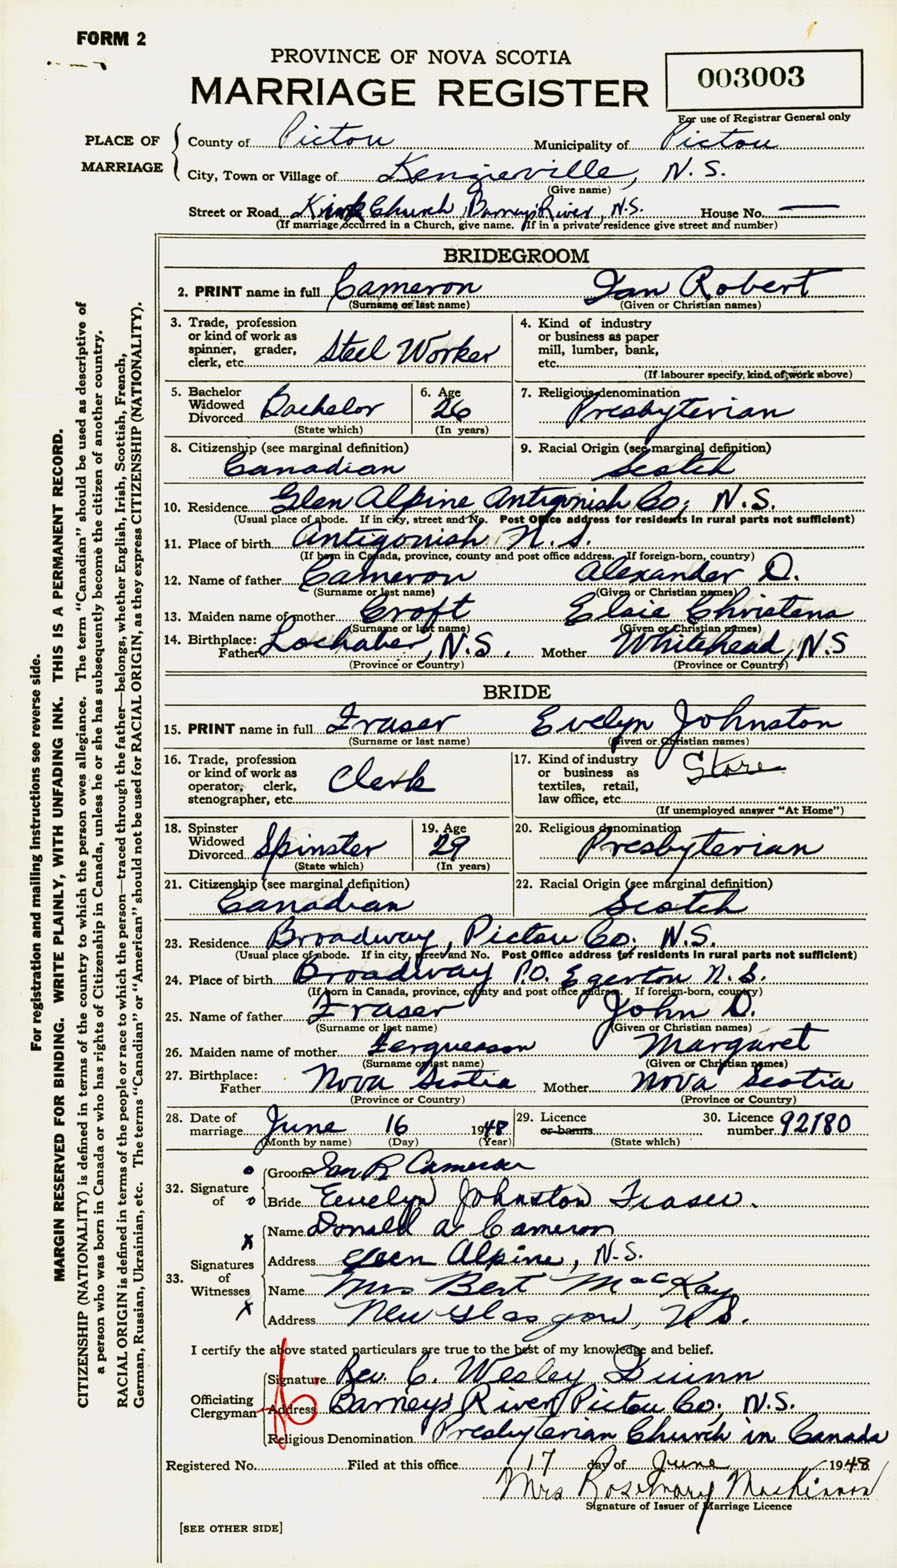 FORM 2
PROVINCE OF NOVA SCOTIA
MARRIAGE REGISTER
003003
For use of Registrar General only
PLACE OF MARRIAGE
County of Pictou Municipality of Pictou
City, Town or Village of Kenzieville, N.S.
(Give name)
Street or Road Kirk Church, Barneys River, N.S. House No. —
(If marriage occurred in a Church, give name. If in a private residence give street and number)
BRIDEGROOM
2. PRINT name in full Cameron Ian Robert
(Surname or last name) (Given or Christian names)
3. Trade, profession or kind of work as spinner, grader, clerk, etc. Steel Worker
4. Kind of industry or business as paper mill, lumber, bank, etc.
(If labourer specify, kind of work above)
5. Bachelor Widowed Divorced Bachelor
(State which)
6. Age 26
(In years)
7. Religious denomination Presbyterian
8. Citizenship (see marginal definition) Canadian
9. Racial Origin (see marginal definition) Scotch
10. Residence Glen Alpine Antigonish Co, N.S.
(Usual place of abode. If in city, street and No. Post Office address for residents in rural parts not sufficient)
11. Place of birth Antigonish N.S.
(If born in Canada, province, county and post office address. If foreign-born, country)
12. Name of father Cameron Alexander D.
(Surname or last name) (Given or Christian names)
13. Maiden name of mother Croft Elsie Christena
(Surname or last name) (Given or Christian names)
14. Birthplace: Father Lochaber, N.S. Mother Whitehead, N.S
(Province or Country) (Province or Country)
BRIDE
15. PRINT name in full Fraser Evelyn Johnston
(Surname or last name) (Given or Christian names)
16. Trade, profession or kind of work as operator, clerk, stenographer, etc. Clerk
17. Kind of industry or business as textiles, retail, law office, etc. Store
(If unemployed answer "At Home")
18. Spinster Widowed Divorced Spinster
(State which)
19. Age 29
(In years)
20. Religious denomination Presbyterian
21. Citizenship (see marginal definition) Canadian
22. Racial Origin (see marginal definition) Scotch
23. Residence Broadway, Pictou Co. N.S.
(Usual place of abode. If in city, street and No. Post Office address for residents in rural parts not sufficient)
24. Place of birth Broadway P.O. Egerton N.S.
(If born in Canada, province, county and post office address. If foreign-born, country)
25. Name of father Fraser John D.
(Surname or last name) (Given or Christian names)
26. Maiden name of mother Fergueason Margaret
(Surname or last name) (Given or Christian names)
27. Birthplace: Father Nova Scotia Mother Nova Scotia
(Province or Country) (Province or Country)
28. Date of marriage June 16 1948
(Month by name) (Day) (Year)
29. Licence or banns
(State which)
30. Licence number 92180
32. Signature of
Groom Ian R Cameron
Bride Evelyn Johnston Fraser.
33. Signatures of Witnesses
x Name Donald A Cameron
Address Glen Alpine, N.S.
Name Mrs Bert MacKay
x Address New Glasgow, N.S.
I certify the above stated particulars are true to the best of my knowledge and belief.
Officiating Clergyman
Signature Rev. C. Wesley Quinn
Address Barneys River Pictou Co. N.S.
Religious Denomination Presbyterian Church in Canada
Registered No. Filed at this office 17 day of June 1948
Mrs Rosemary MacKinnon
Signature of Issuer of Marriage Licence
[SEE OTHER SIDE]
For registration and mailing instructions see reverse side.
MARGIN RESERVED FOR BINDING. WRITE PLAINLY, WITH UNFADING INK. THIS IS A PERMANENT RECORD.
CITIZENSHIP (NATIONALITY) is defined in terms of the country to which the person owes allegiance. The term "Canadian" should be used as descriptive of
a person who was born in Canada or who has rights of Citizenship in Canada, unless he or she has subsequently become the citizen of another country.
RACIAL ORIGIN is defined in terms of the people or race to which the person—traced through the father—belongs, whether English, Irish, Scottish, French,
German, Russian, Ukrainian, etc. The terms "Canadian" or "American" should not be used for RACIAL ORIGIN, as they express CITIZENSHIP (NATIONALITY).